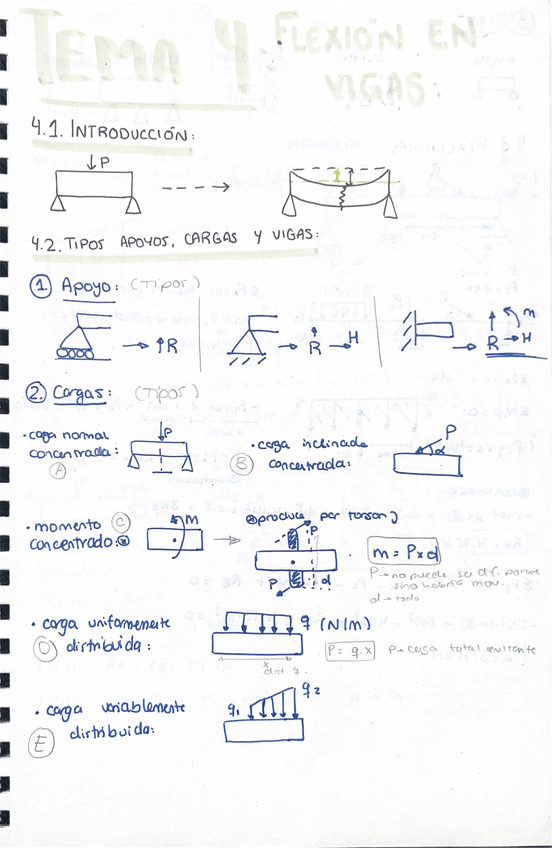 TEMA 4: FLEXIÓN EN
VIGAS:
4.1. INTRODUCCIÓN:
P
4.2. TIPOS APOYOS, CARGAS Y VIGAS:
1. Apoyo: (Tipos)
R
R H
R H m
2. Cargas: (Tipos)
· carga normal
concentrada:
A
P
· carga inclinada
concentrada:
B
P
α
· momento C
concentrado:
M
produce par torsor
P
P d
m = P x d
P → no puede ser dif. porque
sino habría mov.
d →
· carga uniformemente
D distribuida:
q (N/m)
x
dist. q.
P = q.x P → carga total
· carga variablemente
distribuida:
E
q1 q2